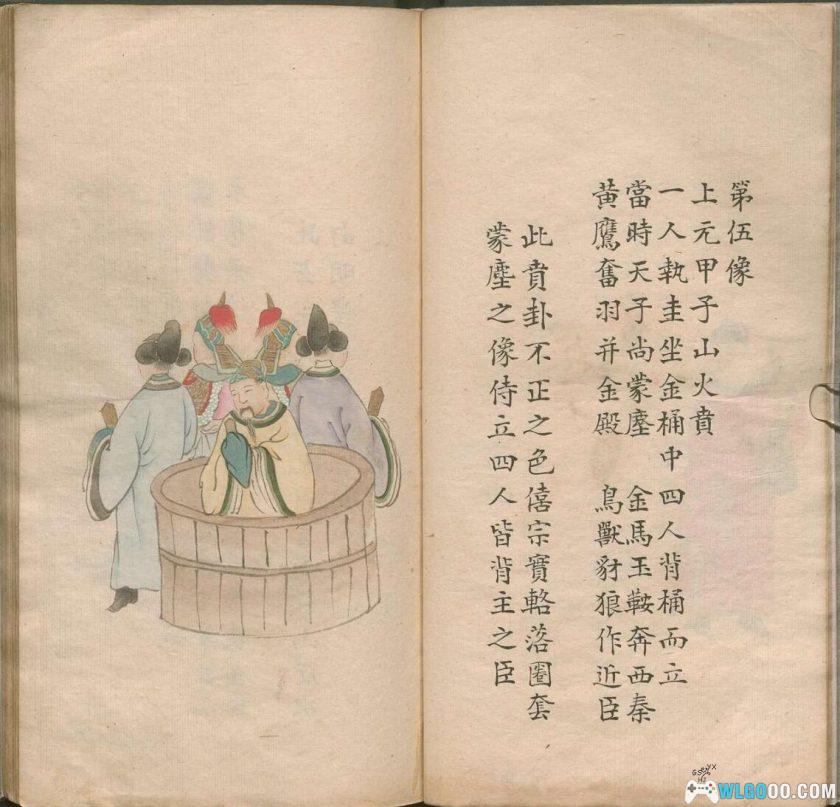 第伍像
上元甲子山火賁
一人執圭坐金桶中四人背桶而立
當時天子尚蒙塵　金馬玉鞍奔西秦
黃鷹奮羽并金殿　鳥獸豺狼作近臣
此賁卦不正之色僖宗實輅落圈套
蒙塵之像侍立四人皆背主之臣
WLGOOO.COM